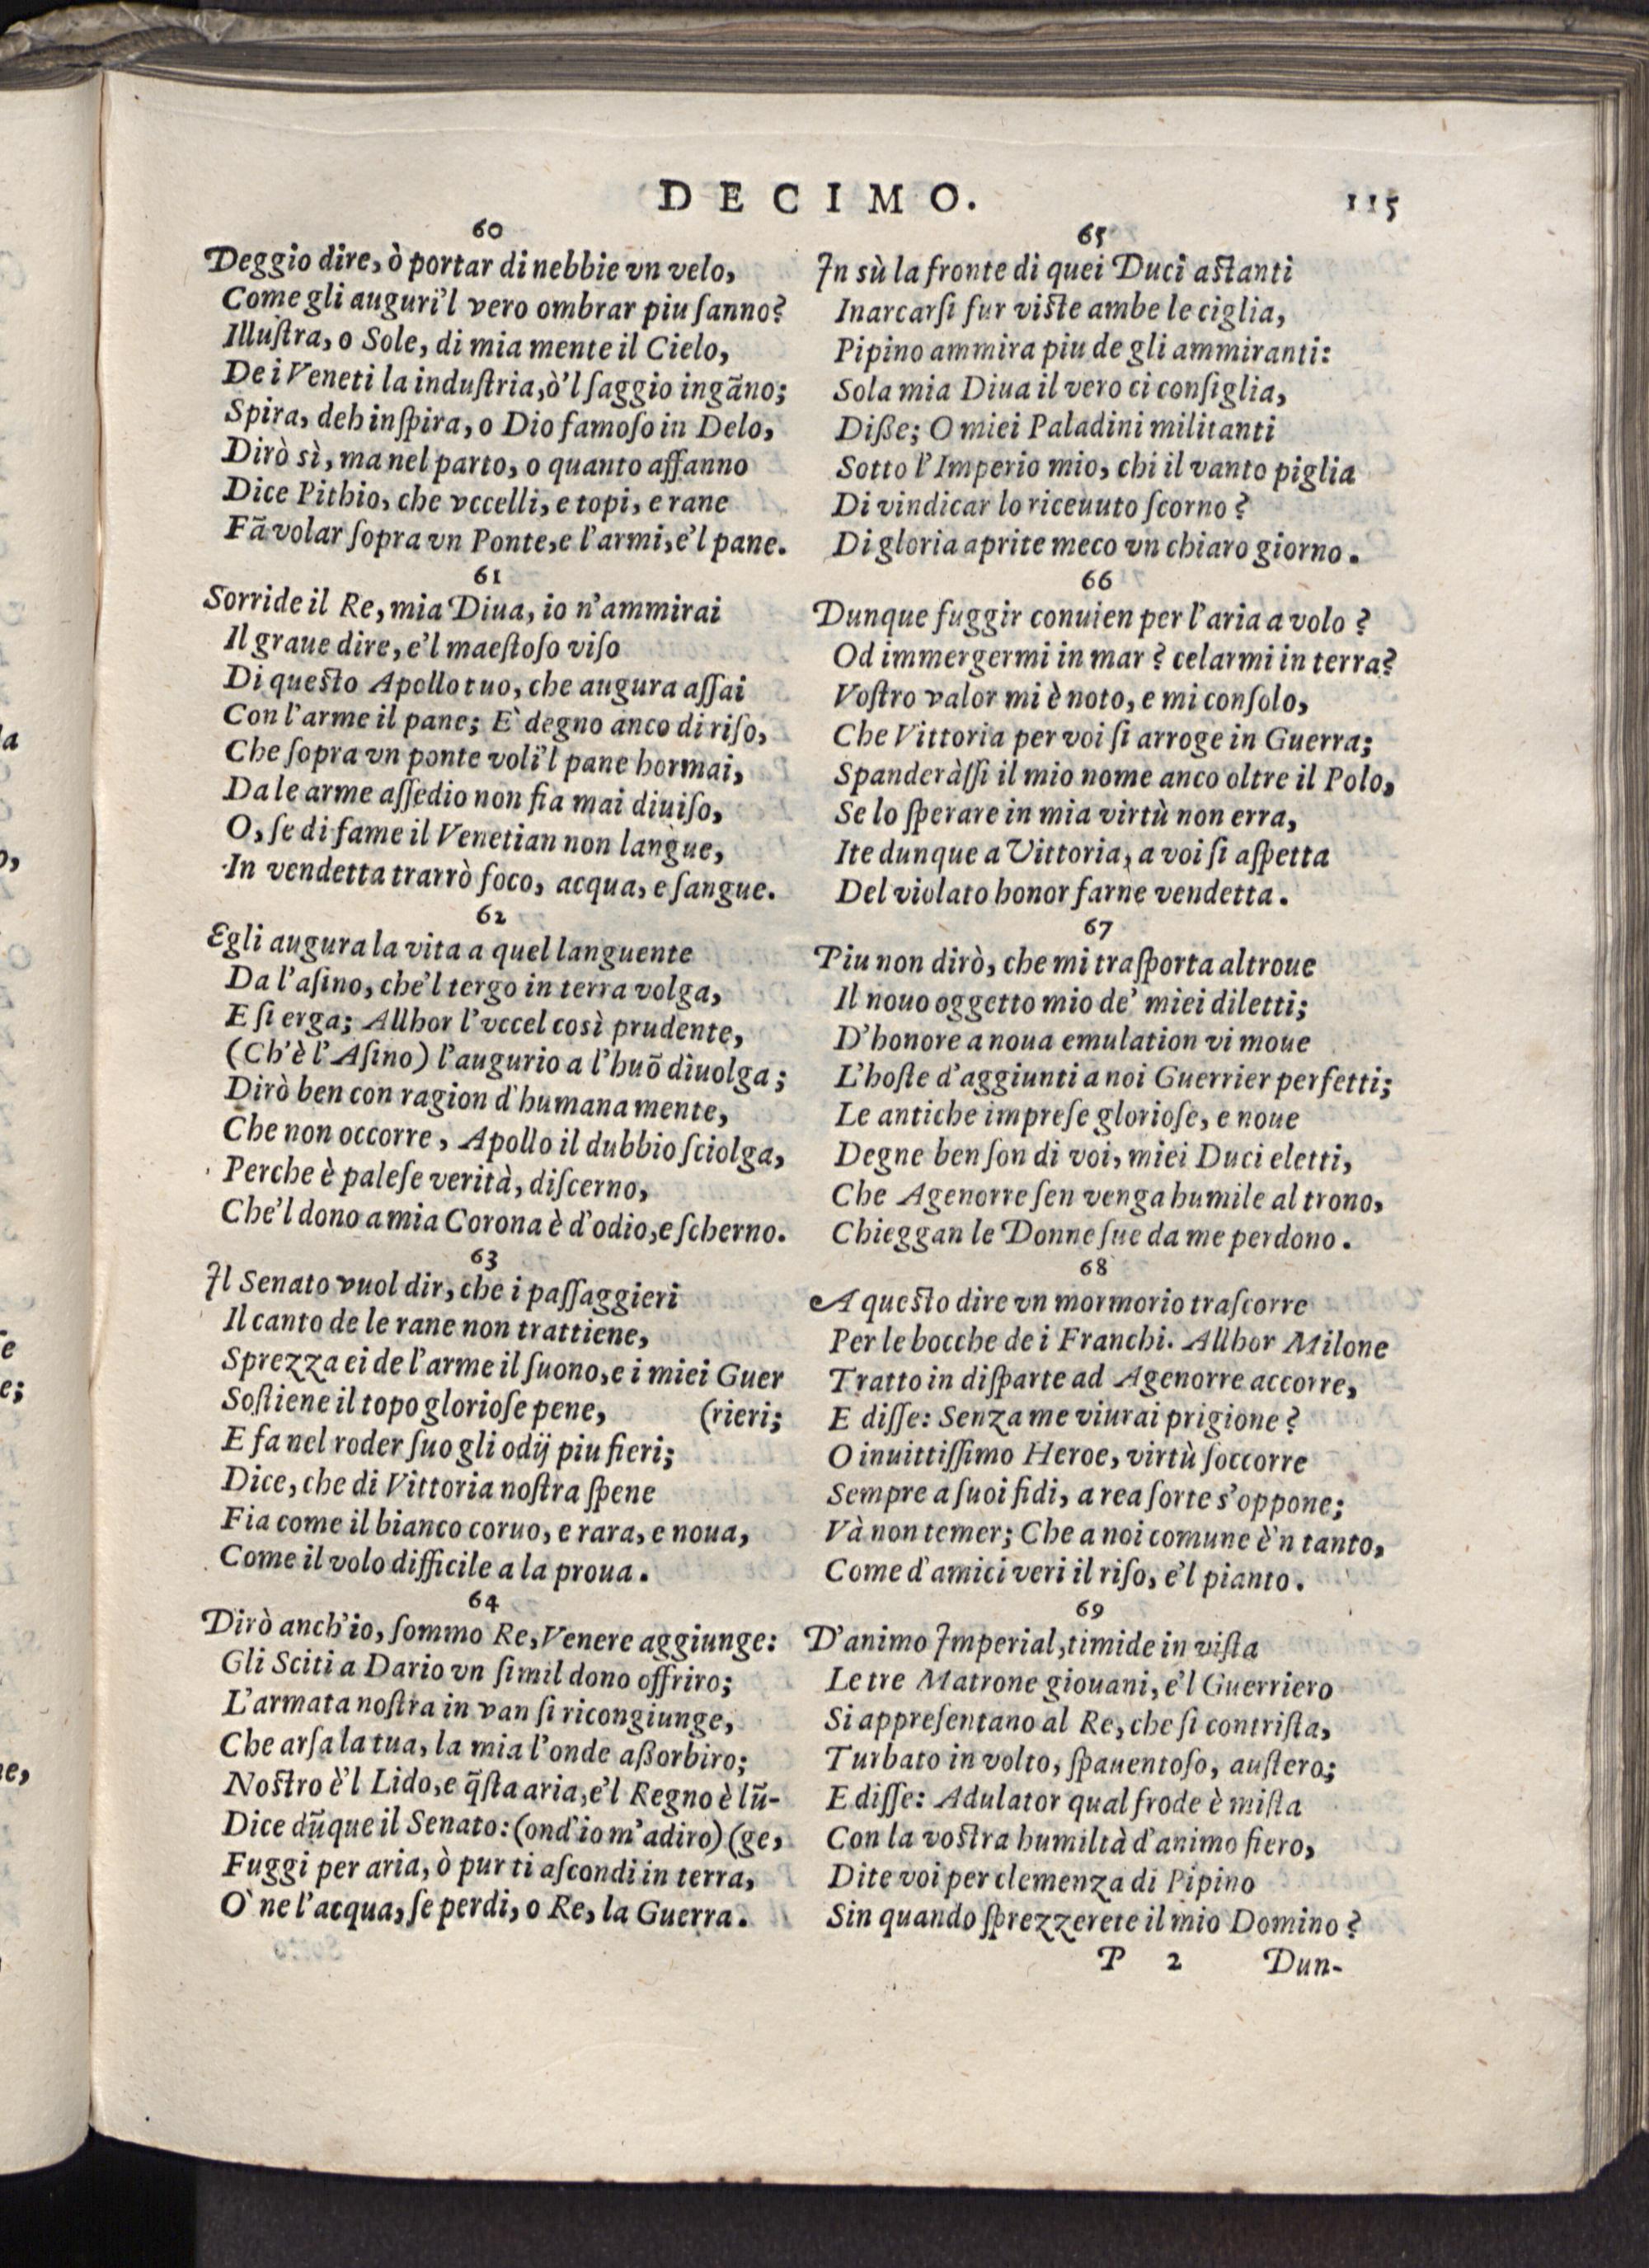 DECIMO. 115
60
Deggio dire, ò portar di nebbie vn velo,
Come gli auguri'l vero ombrar piu ſanno?
Illuſtra, o Sole, di mia mente il Cielo,
De i Veneti la induſtria, ò'l ſaggio ingãno;
Spira, deh inſpira, o Dio famoſo in Delo,
Dirò sì, ma nel parto, o quanto affanno
Dice Pithio, che vccelli, e topi, e rane
Fã volar ſopra vn Ponte, e l'armi, e'l pane.
61
Sorride il Re, mia Diua, io n'ammirai
Il graue dire, e'l maeſtoſo viſo
Di queſto Apollo tuo, che augura aſſai
Con l'arme il pane; E' degno anco di riſo,
Che ſopra vn ponte voli'l pane hormai,
Da le arme aſſedio non fia mai diuiſo,
O, ſe di fame il Venetian non langue,
In vendetta trarrò foco, acqua, e ſangue.
62
Egli augura la vita a quel languente
Da l'aſino, che'l tergo in terra volga,
E ſi erga; Allhor l'vccel così prudente,
(Ch'è l'Aſino) l'augurio a l'huõ diuolga;
Dirò ben con ragion d'humana mente,
Che non occorre, Apollo il dubbio ſciolga,
Perche è paleſe verità, diſcerno,
Che'l dono a mia Corona è d'odio, e ſcherno.
63
Il Senato vuol dir, che i paſſaggieri
Il canto de le rane non trattiene,
Sprezza ei de l'arme il ſuono, e i miei Guer
Soſtiene il topo glorioſe pene, (rieri;
E fa nel roder ſuo gli odij piu fieri;
Dice, che di Vittoria noſtra ſpene
Fia come il bianco coruo, e rara, e noua,
Come il volo difficile a la proua.
64
Dirò anch'io, ſommo Re, Venere aggiunge:
Gli Sciti a Dario vn ſimil dono offriro;
L'armata noſtra in van ſi ricongiunge,
Che arſa la tua, la mia l'onde aßorbiro;
Noſtro è'l Lido, e q̃ſta aria, e'l Regno è lũ-
Dice dũque il Senato: (ond'io m'adiro) (ge,
Fuggi per aria, ò pur ti aſcondi in terra,
O' ne l'acqua, ſe perdi, o Re, la Guerra.
65
In sù la fronte di quei Duci aſtanti
Inarcarſi fur viſte ambe le ciglia,
Pipino ammira piu de gli ammiranti:
Sola mia Diua il vero ci conſiglia,
Diße; O miei Paladini militanti
Sotto l'Imperio mio, chi il vanto piglia
Di vindicar lo riceuuto ſcorno?
Di gloria aprite meco vn chiaro giorno.
66
Dunque fuggir conuien per l'aria a volo?
Od immergermi in mar? celarmi in terra?
Voſtro valor mi è noto, e mi conſolo,
Che Vittoria per voi ſi arroge in Guerra;
Spanderàſſi il mio nome anco oltre il Polo,
Se lo ſperare in mia virtù non erra,
Ite dunque a Vittoria, a voi ſi aſpetta
Del violato honor farne vendetta.
67
Piu non dirò, che mi traſporta altroue
Il nouo oggetto mio de' miei diletti;
D'honore a noua emulation vi moue
L'hoſte d'aggiunti a noi Guerrier perfetti;
Le antiche impreſe glorioſe, e noue
Degne ben ſon di voi, miei Duci eletti,
Che Agenorre ſen venga humile al trono,
Chieggan le Donne ſue da me perdono.
68
A queſto dire vn mormorio traſcorre
Per le bocche de i Franchi. Allhor Milone
Tratto in diſparte ad Agenorre accorre,
E diſſe: Senza me viurai prigione?
O inuittiſſimo Heroe, virtù ſoccorre
Sempre a ſuoi fidi, a rea ſorte s'oppone;
Và non temer; Che a noi comune è'n tanto,
Come d'amici veri il riſo, e'l pianto.
69
D'animo Imperial, timide in viſta
Le tre Matrone giouani, e'l Guerriero
Si appreſentano al Re, che ſi contriſta,
Turbato in volto, ſpauentoſo, auſtero;
E diſſe: Adulator qual frode è miſta
Con la voſtra humiltà d'animo fiero,
Dite voi per clemenza di Pipino
Sin quando ſprezzerete il mio Domino?
P 2 Dun-